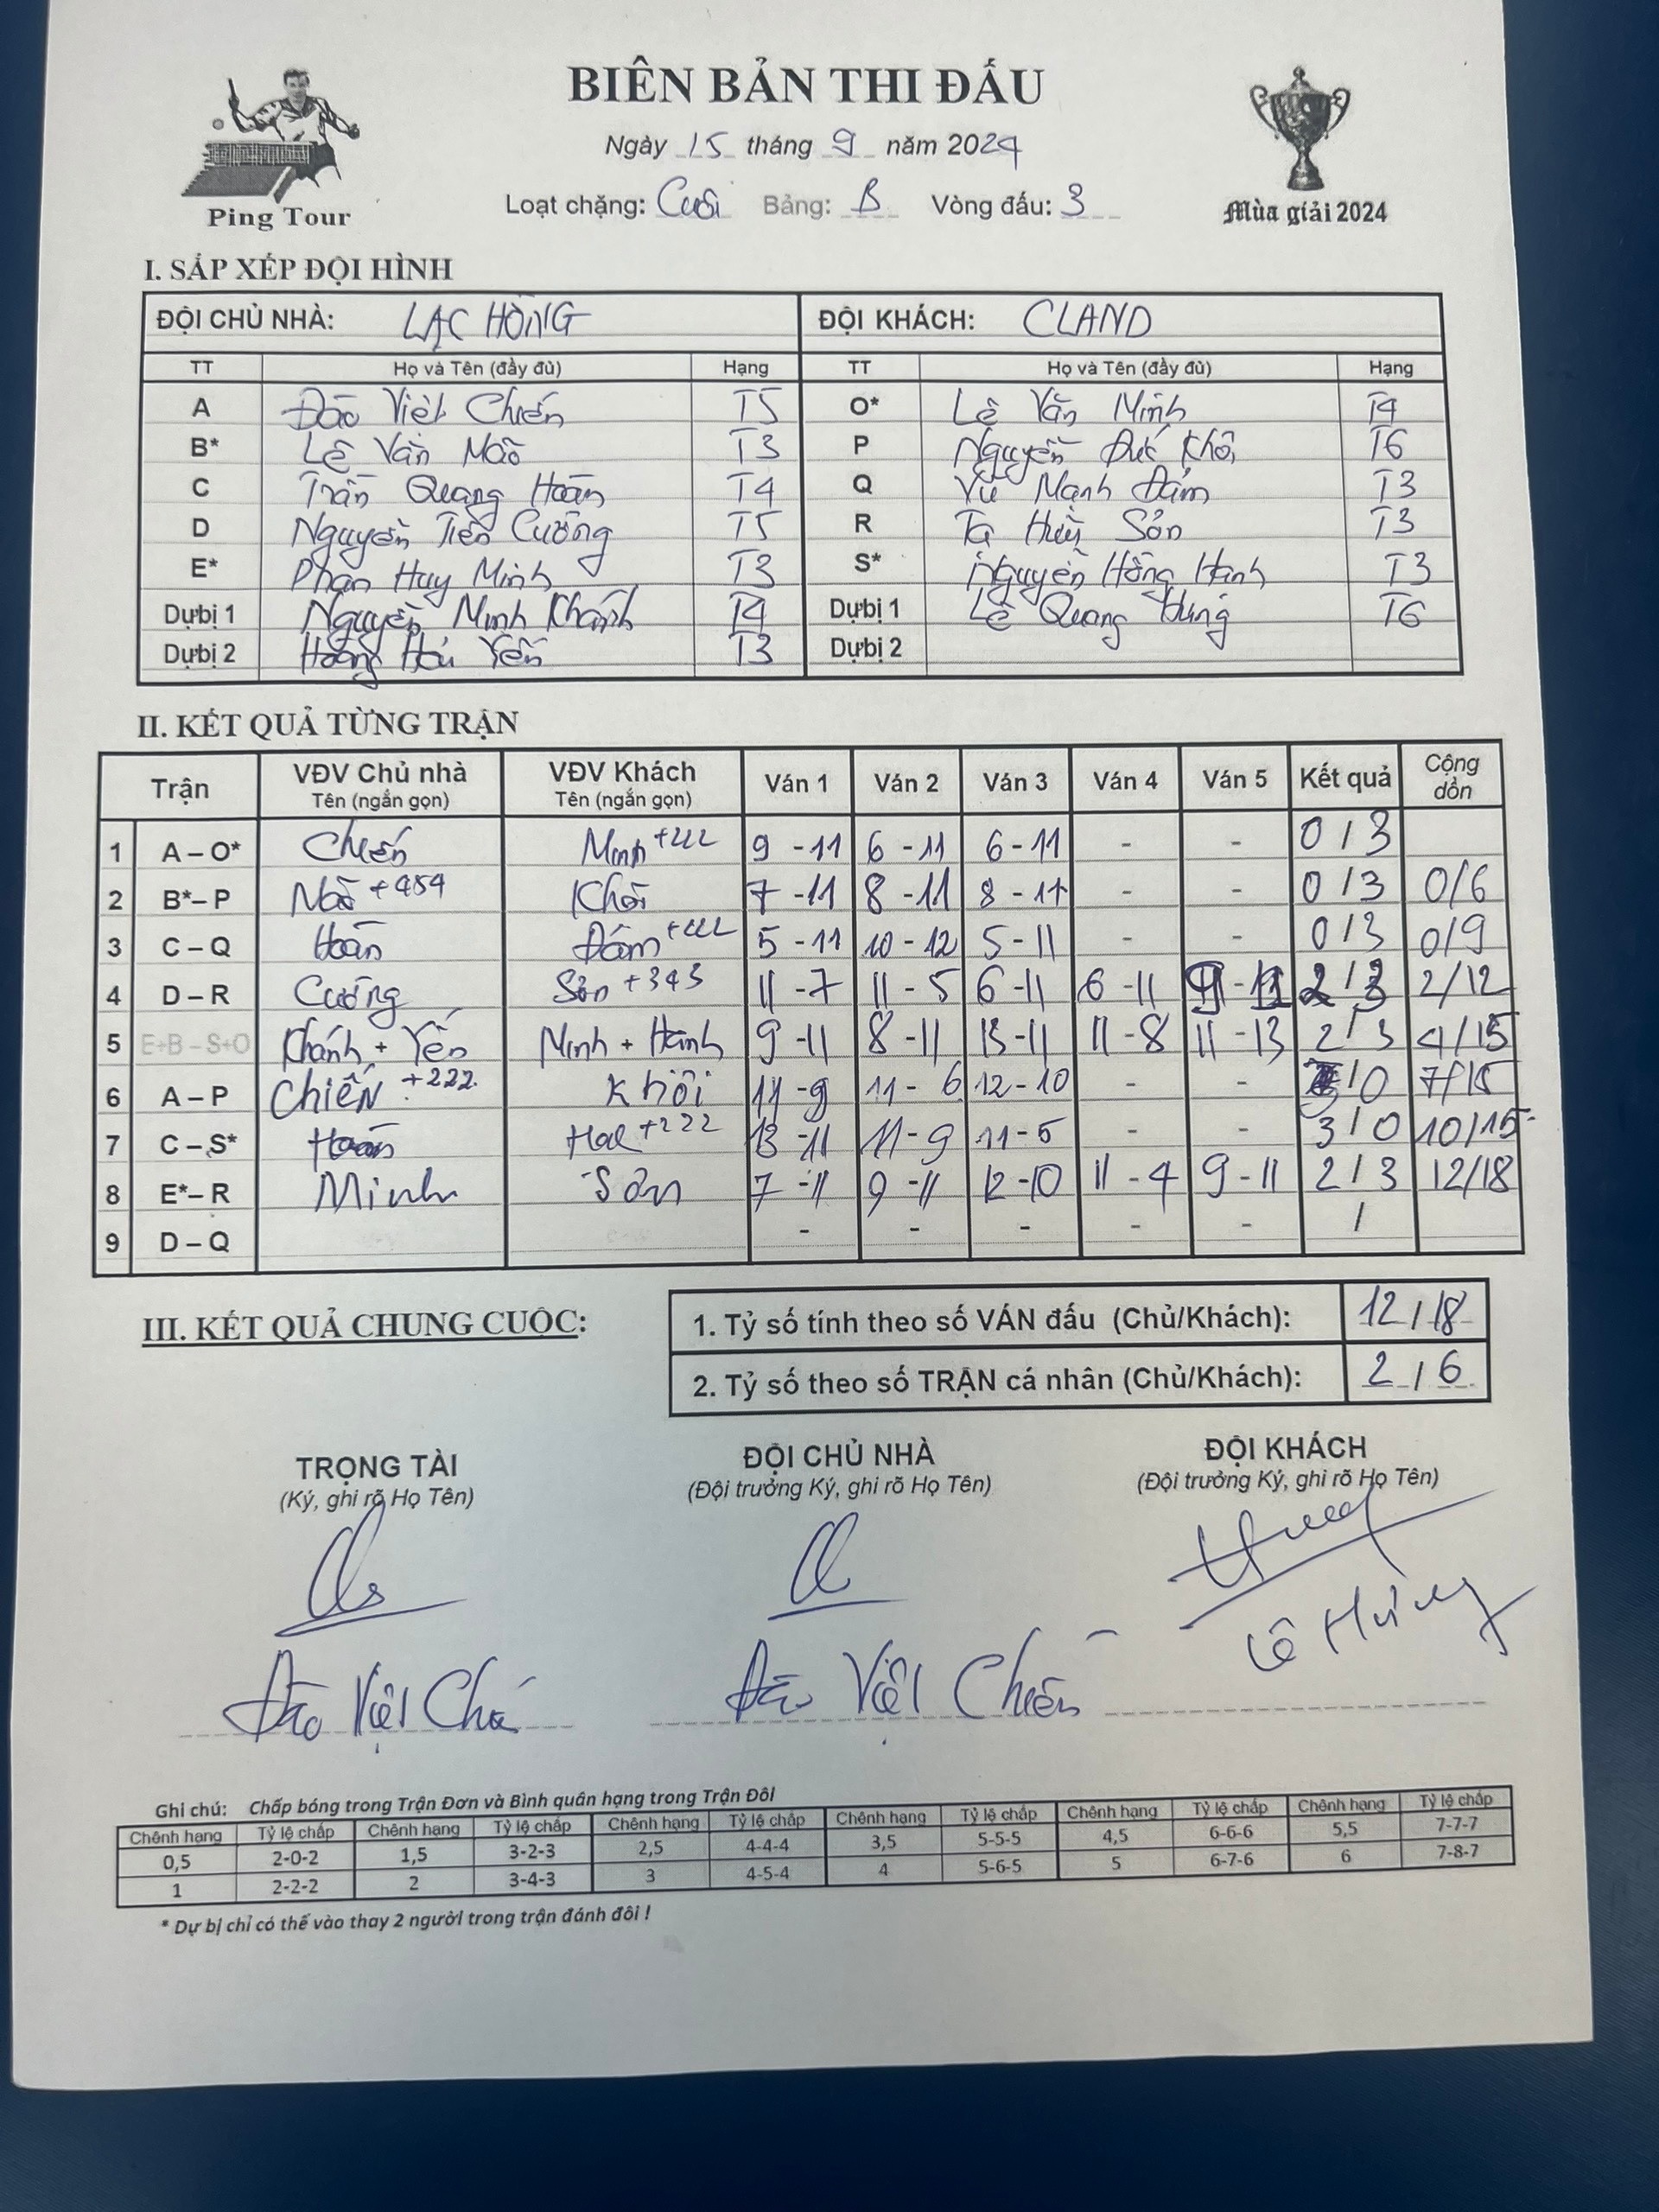 BIÊN BẢN THI ĐẤU
Ngày 15 tháng 9 năm 2024
Loạt chặng: Cuối Bảng: B Vòng đấu: 3
Ping Tour
Mùa giải 2024
I. SẮP XẾP ĐỘI HÌNH
ĐỘI CHỦ NHÀ: LẠC HỒNG ĐỘI KHÁCH: CLAND
TT Họ và Tên (đầy đủ) Hạng TT Họ và Tên (đầy đủ) Hạng
A Đào Việt Chiến T5 O* Lê Văn Minh T4
B* Lê Văn Mão T3 P Nguyễn Đức Khôi T6
C Trần Quang Hoàn T4 Q Vũ Mạnh Đảm T3
D Nguyễn Tiến Cường T5 R Tạ Hữu Sơn T3
E* Phan Huy Minh T3 S* Nguyễn Hồng Hạnh T3
Dự bị 1 Nguyễn Minh Khánh T4 Dự bị 1 Lê Quang Hùng T6
Dự bị 2 Hoàng Hải Yến T3 Dự bị 2
II. KẾT QUẢ TỪNG TRẬN
Trận VĐV Chủ nhà Tên (ngắn gọn) VĐV Khách Tên (ngắn gọn) Ván 1 Ván 2 Ván 3 Ván 4 Ván 5 Kết quả Cộng dồn
1 A – O* Chiến Minh +222 9 - 11 6 - 11 6 - 11 - - 0 / 3
2 B* – P Mão +454 Khôi 7 - 11 8 - 11 8 - 11 - - 0 / 3 0/6
3 C – Q Hoàn Đảm +222 5 - 11 10 - 12 5 - 11 - - 0 / 3 0/9
4 D – R Cường Sơn +343 11 - 7 11 - 5 6 - 11 6 - 11 2 / 3 2/12
5 E+B – S+O Khánh + Yến Minh + Hạnh 9 - 11 8 - 11 13 - 11 11 - 8 11 - 13 2 / 3 4/15
6 A – P Chiến +222 Khôi 11 - 9 11 - 6 12 - 10 - - 3 / 0 7/15
7 C – S* Hoàn +222 13 - 11 11 - 9 11 - 5 - - 3 / 0 10/15
8 E* – R Minh Sơn 7 - 11 9 - 11 12 - 10 11 - 4 9 - 11 2 / 3 12/18
9 D – Q - - - - - /
III. KẾT QUẢ CHUNG CUỘC:
1. Tỷ số tính theo số VÁN đấu (Chủ/Khách): 12 / 18
2. Tỷ số theo số TRẬN cá nhân (Chủ/Khách): 2 / 6
TRỌNG TÀI ĐỘI CHỦ NHÀ ĐỘI KHÁCH
(Ký, ghi rõ Họ Tên) (Đội trưởng Ký, ghi rõ Họ Tên) (Đội trưởng Ký, ghi rõ Họ Tên)
Lê Hùng
Đào Việt Chiến Đào Việt Chiến
Ghi chú: Chấp bóng trong Trận Đơn và Bình quân hạng trong Trận Đôi
Chênh hạng Tỷ lệ chấp Chênh hạng Tỷ lệ chấp Chênh hạng Tỷ lệ chấp Chênh hạng Tỷ lệ chấp Chênh hạng Tỷ lệ chấp Chênh hạng Tỷ lệ chấp
0,5 2-0-2 1,5 3-2-3 2,5 4-4-4 3,5 5-5-5 4,5 6-6-6 5,5 7-7-7
1 2-2-2 2 3-4-3 3 4-5-4 4 5-6-5 5 6-7-6 6 7-8-7
* Dự bị chỉ có thể vào thay 2 người trong trận đánh đôi !